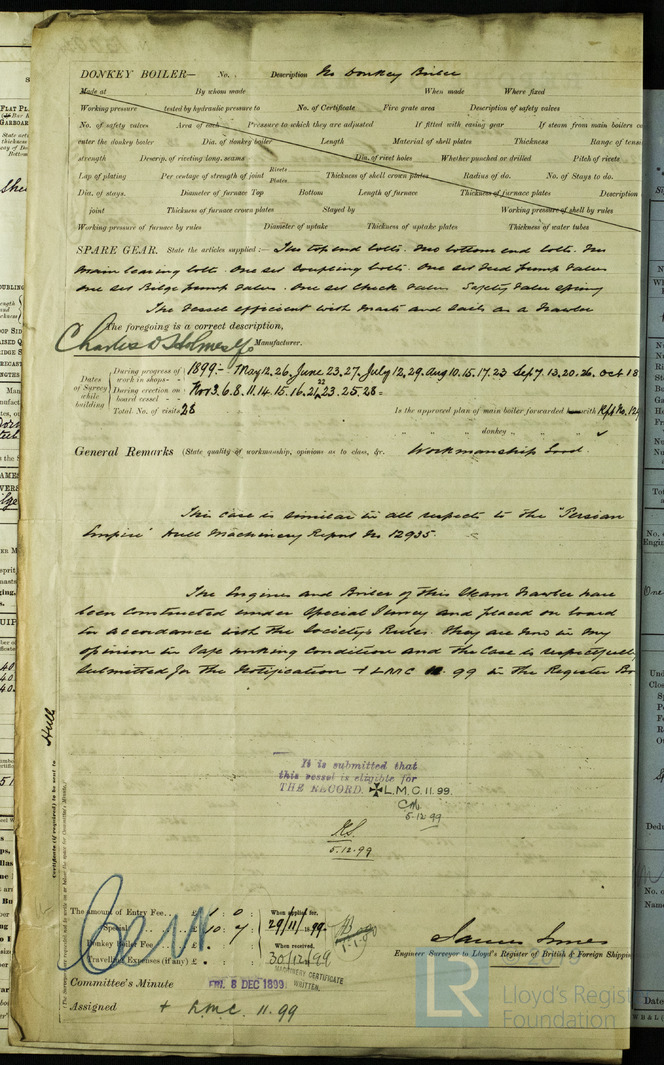 DONKEY BOILER— No. Description No Donkey Boiler
Made at By whom made When made Where fixed
Working pressure tested by hydraulic pressure to No. of Certificate Fire grate area Description of safety valves
No. of safety valves Area of each Pressure to which they are adjusted If fitted with easing gear If steam from main boilers
enter the donkey boiler Dia. of donkey boiler Length Material of shell plates Thickness Range of
strength Descrip. of riveting long. seams Dia. of rivet holes Whether punched or drilled Pitch of rivets
Lap of plating Per centage of strength of joint Rivets Plates Thickness of shell crown plates Radius of do. No. of Stays to do.
Dia. of stays. Diameter of furnace Top Bottom Length of furnace Thickness of furnace plates Description
joint Thickness of furnace crown plates Stayed by Working pressure of shell by rules
Working pressure of furnace by rules Diameter of uptake Thickness of uptake plates Thickness of water tubes
SPARE GEAR. State the articles supplied:— Two top end bolts. Two bottom end bolts. Two
main bearing bolts. One set coupling bolts. One set Feed pump valves
one set Bilge pump valves. One set Check valves Safety valve spring
The Vessel efficient with masts and sails as a Trawler
The foregoing is a correct description,
Charles D Holmes & Co Manufacturer.
Dates of Survey while building
During progress of work in shops - - 1899:- May 12.26. June 23.27. July 12.29. Aug 10.15.17.23 Sep 7.13.20.26. Oct 18
During erection on board vessel - - - Nov 3.6.8.11.14.15.16.21.22.23.25.28=
Total No. of visits 28 Is the approved plan of main boiler forwarded herewith Rpt No. 12
" " " donkey " " " ✓
General Remarks (State quality of workmanship, opinions as to class, &c. Workmanship Good.
This case is similar in all respects to the "Persian
Empire" Hull Machinery Report No 12935.
The Engines and Boiler of this Steam Trawler have
been constructed under Special Survey and placed on board
in accordance with the Society's Rules. They are now in my
opinion in safe working condition and the case is respectfully
submitted for the Notification + LMC 11. 99 in the Register Bo
It is submitted that
this vessel is eligible for
THE RECORD. ✠ L.M.C. 11.99.
5.12.99
5.12.99
Hull
Certificate (if required) to be sent to
The amount of Entry Fee.. £ 1 : 0 : When applied for,
Special .. .. £ 10 : 4 : 29/11/1899
Donkey Boiler Fee .. £ : : When received,
Travelling Expenses (if any) £ : : 30/12/99
James Innes
Engineer Surveyor to Lloyd's Register of British & Foreign Shipping
MACHINERY CERTIFICATE
WRITTEN.
Committee's Minute FRI. 8 DEC 1899
Assigned + L.M.C. 11.99
LR
Lloyd's Register
Foundation